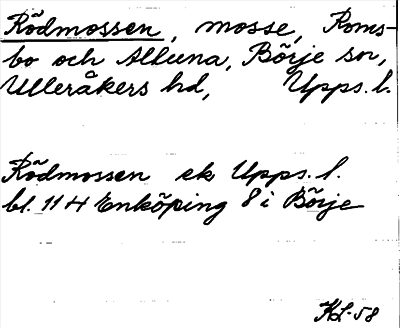 Rödmossen, mosse, Roms-
bo och Altuna, Börje sn,
Ulleråkers hd, Upps. l.
Rödmossen ek Upps. l.
bl. 114 Enköping 8 i Börje
KL-58